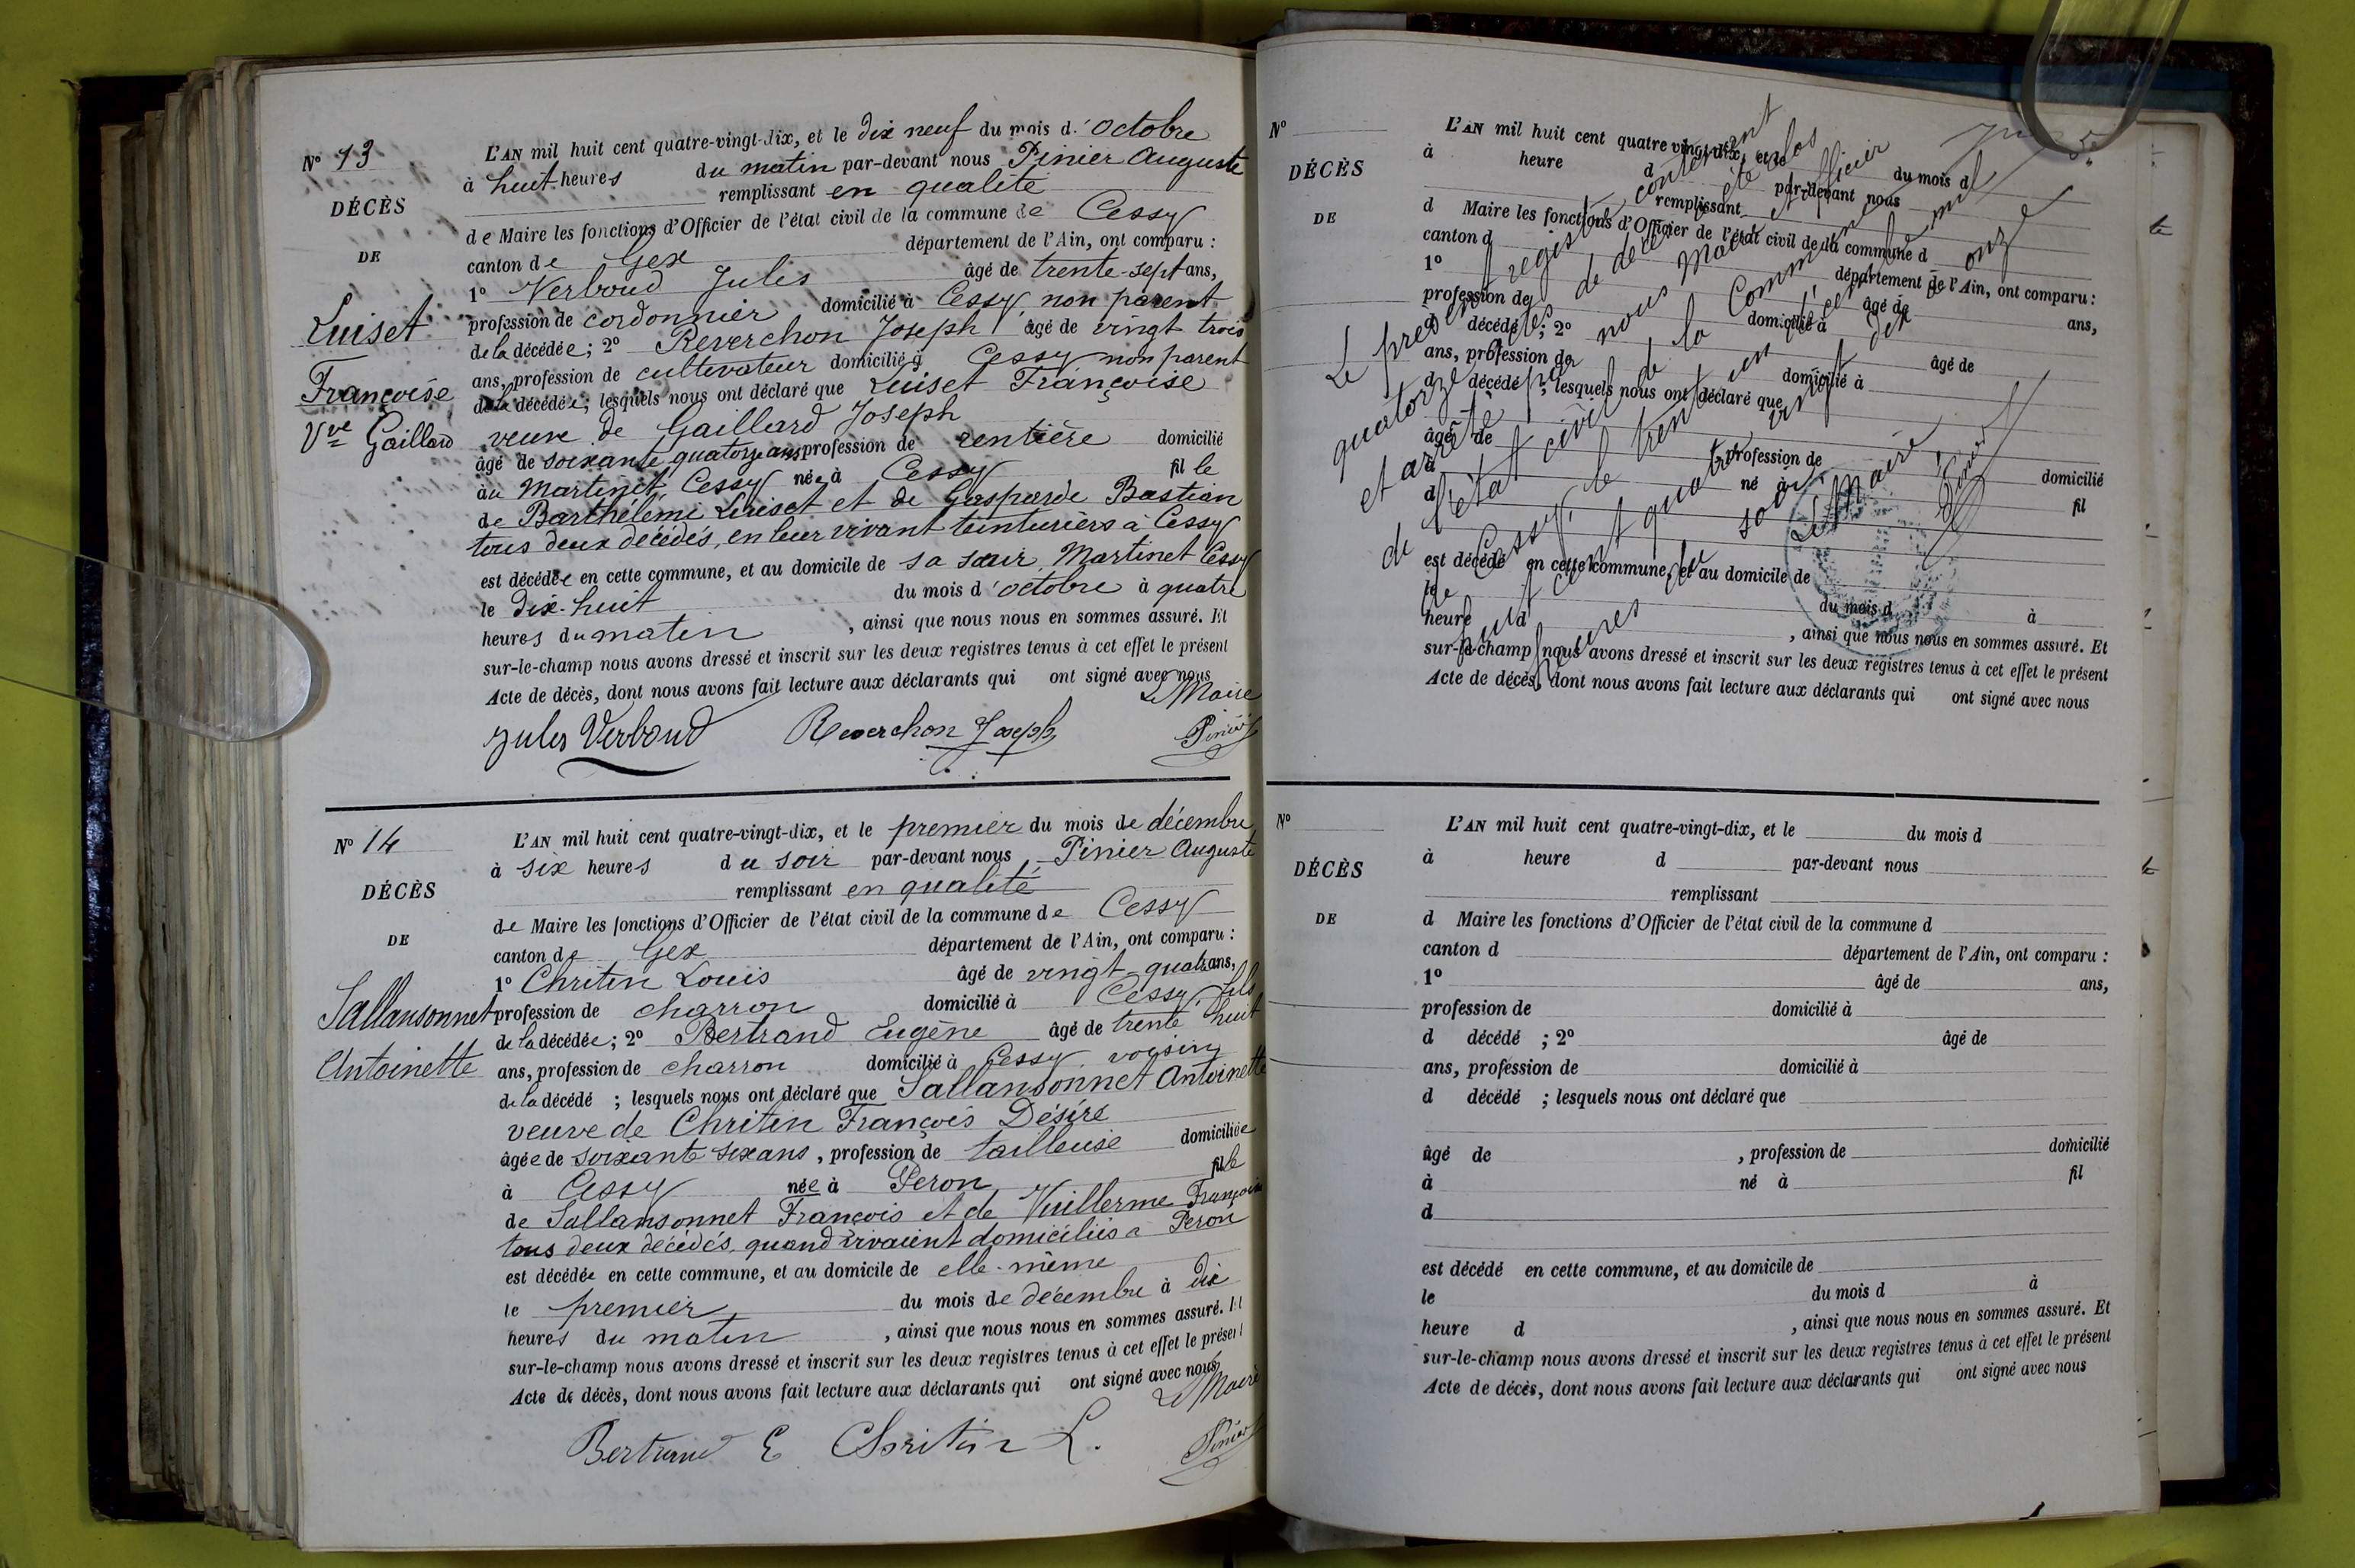 N° 13
DÉCÈS
DE
Luiset
Françoise
Vve Gaillard
L'AN mil huit cent quatre-vingt-dix, et le dix neuf du mois d'octobre
à huit heures du matin par-devant nous Pinier Auguste
remplissant en qualité
de Maire les fonctions d'Officier de l'état civil de la commune de Cessy
canton de Gex département de l'Ain, ont comparu :
1° Verboud Jules âgé de trente-sept ans,
profession de cordonnier domicilié à Cessy, non parent
de la décédée ; 2° Reverchon Joseph âgé de vingt trois
ans, profession de cultivateur domicilié à Cessy non parent
de la décédée ; lesquels nous ont déclaré que Luiset Françoise
veuve de Gaillard Joseph
âgé de soixante quatorze ans profession de rentière domicilié
au Martinet, Cessy née à Cessy fille
de Barthélemi Luiset et de Gasparde Bastian
tous deux décédés, en leur vivant teinturiers à Cessy
est décédée en cette commune, et au domicile de sa sœur, Martinet Cessy
le dix-huit du mois d'octobre à quatre
heures du matin , ainsi que nous nous en sommes assuré. Et
sur-le-champ nous avons dressé et inscrit sur les deux registres tenus à cet effet le présent
Acte de décès, dont nous avons fait lecture aux déclarants qui ont signé avec nous
Le Maire
Jules Verboud Reverchon Joseph Pinier
N° 14
DÉCÈS
DE
Sallansonnet
Antoinette
L'AN mil huit cent quatre-vingt-dix, et le premier du mois de décembre
à six heures du soir par-devant nous, Pinier Auguste
remplissant en qualité
de Maire les fonctions d'Officier de l'état civil de la commune de Cessy
canton de Gex département de l'Ain, ont comparu :
1° Chritin Louis âgé de vingt-quatre ans,
profession de charron domicilié à Cessy, fils
de la décédée ; 2° Bertrand Eugène âgé de trente huit
ans, profession de charron domicilié à Cessy voisin
de la décédé ; lesquels nous ont déclaré que Sallansonnet Antoinette
veuve de Chritin François Désiré
âgée de soixante six ans, profession de tailleuse domiciliée
à Cessy née à Peron fille
de Sallansonnet François et de Vuillerme Françoise
tous deux décédés, quand vivaient domiciliés à Peron
est décédée en cette commune, et au domicile de elle-même
le premier, du mois de décembre à dix
heures du matin , ainsi que nous nous en sommes assuré. Et
sur-le-champ nous avons dressé et inscrit sur les deux registres tenus à cet effet le présent
Acte de décès, dont nous avons fait lecture aux déclarants qui ont signé avec nous
Le Maire
Bertrand E Chritin L. Pinier
N°
DÉCÈS
DE
L'AN mil huit cent quatre-vingt-dix, et le du mois d
à heure d par-devant nous
remplissant
d Maire les fonctions d'Officier de l'état civil de la commune d
canton d département de l'Ain, ont comparu :
1° âgé de ans,
profession de domicilié à
d décédé ; 2° âgé de
ans, profession de domicilié à
d décédé ; lesquels nous ont déclaré que
âgé de , profession de domicilié
à né à fil
d
est décédé en cette commune, et au domicile de
le du mois d à
heure d , ainsi que nous nous en sommes assuré. Et
sur-le-champ nous avons dressé et inscrit sur les deux registres tenus à cet effet le présent
Acte de décès, dont nous avons fait lecture aux déclarants qui ont signé avec nous
Le présent registre contenant
quatorze actes de décès a été clos
et arrêté par nous Maire et officier
de l'état civil de la Commune
de Cessy, le trente un décembre mil
huit cent quatre vingt dix onze
heures du soir
Le Maire,
Pinier
N°
DÉCÈS
DE
L'AN mil huit cent quatre-vingt-dix, et le du mois d
à heure d par-devant nous
remplissant
d Maire les fonctions d'Officier de l'état civil de la commune d
canton d département de l'Ain, ont comparu :
1° âgé de ans,
profession de domicilié à
d décédé ; 2° âgé de
ans, profession de domicilié à
d décédé ; lesquels nous ont déclaré que
âgé de , profession de domicilié
à né à fil
d
est décédé en cette commune, et au domicile de
le du mois d à
heure d , ainsi que nous nous en sommes assuré. Et
sur-le-champ nous avons dressé et inscrit sur les deux registres tenus à cet effet le présent
Acte de décès, dont nous avons fait lecture aux déclarants qui ont signé avec nous